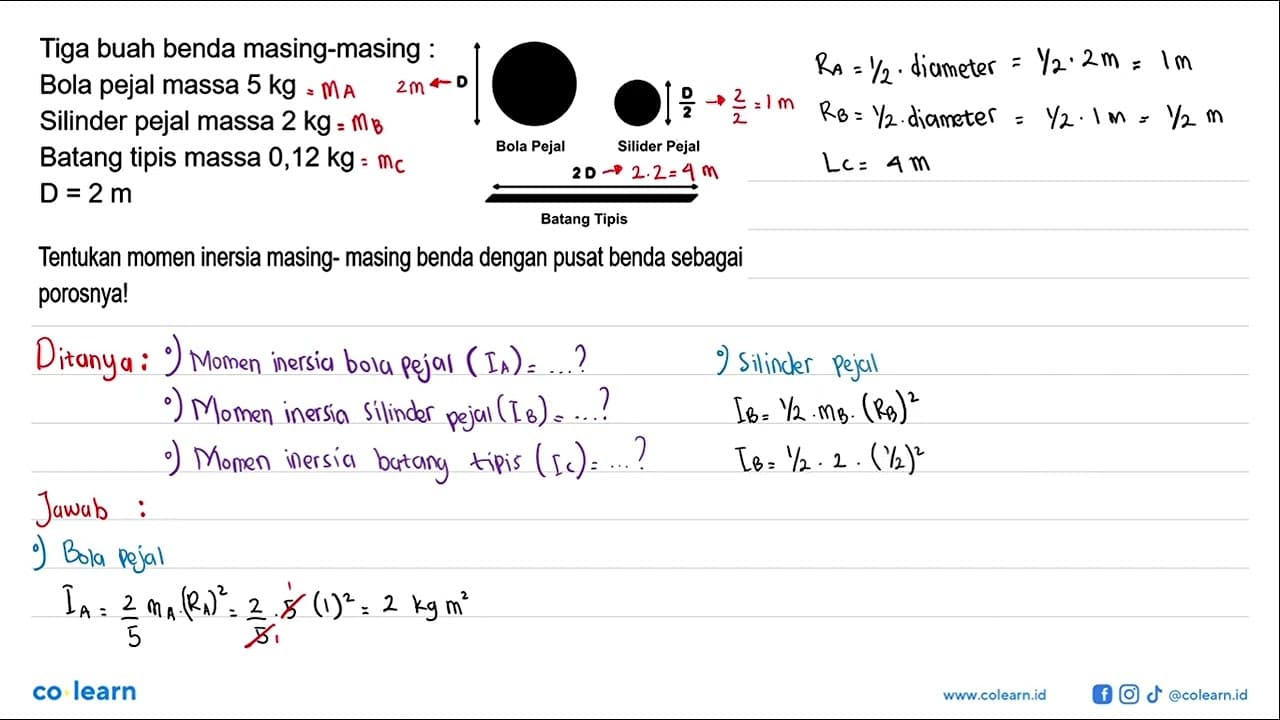 Tiga buah benda masing-masing :
Bola pejal massa 5 kg = mA
Silinder pejal massa 2 kg = mB
Batang tipis massa 0,12 kg = mC
D = 2 m
2m ← D
D/2 → 2/2 = 1 m
Bola Pejal Silider Pejal
2 D → 2.2 = 4 m
Batang Tipis
RA = 1/2 . diameter = 1/2 . 2m = 1m
RB = 1/2 . diameter = 1/2 . 1m = 1/2 m
Lc = 4 m
Tentukan momen inersia masing- masing benda dengan pusat benda sebagai
porosnya!
Ditanya : °) Momen inersia bola pejal (IA) = ...?
°) Momen inersia silinder pejal (IB) = ...?
°) Momen inersia batang tipis (Ic) = ...?
Jawab :
°) Bola pejal
IA = 2/5 mA.(RA)² = 2/5 . 5 (1)² = 2 kg m²
°) Silinder pejal
IB = 1/2 . mB. (RB)²
IB = 1/2 . 2 . (1/2)²
co learn
www.colearn.id
@colearn.id